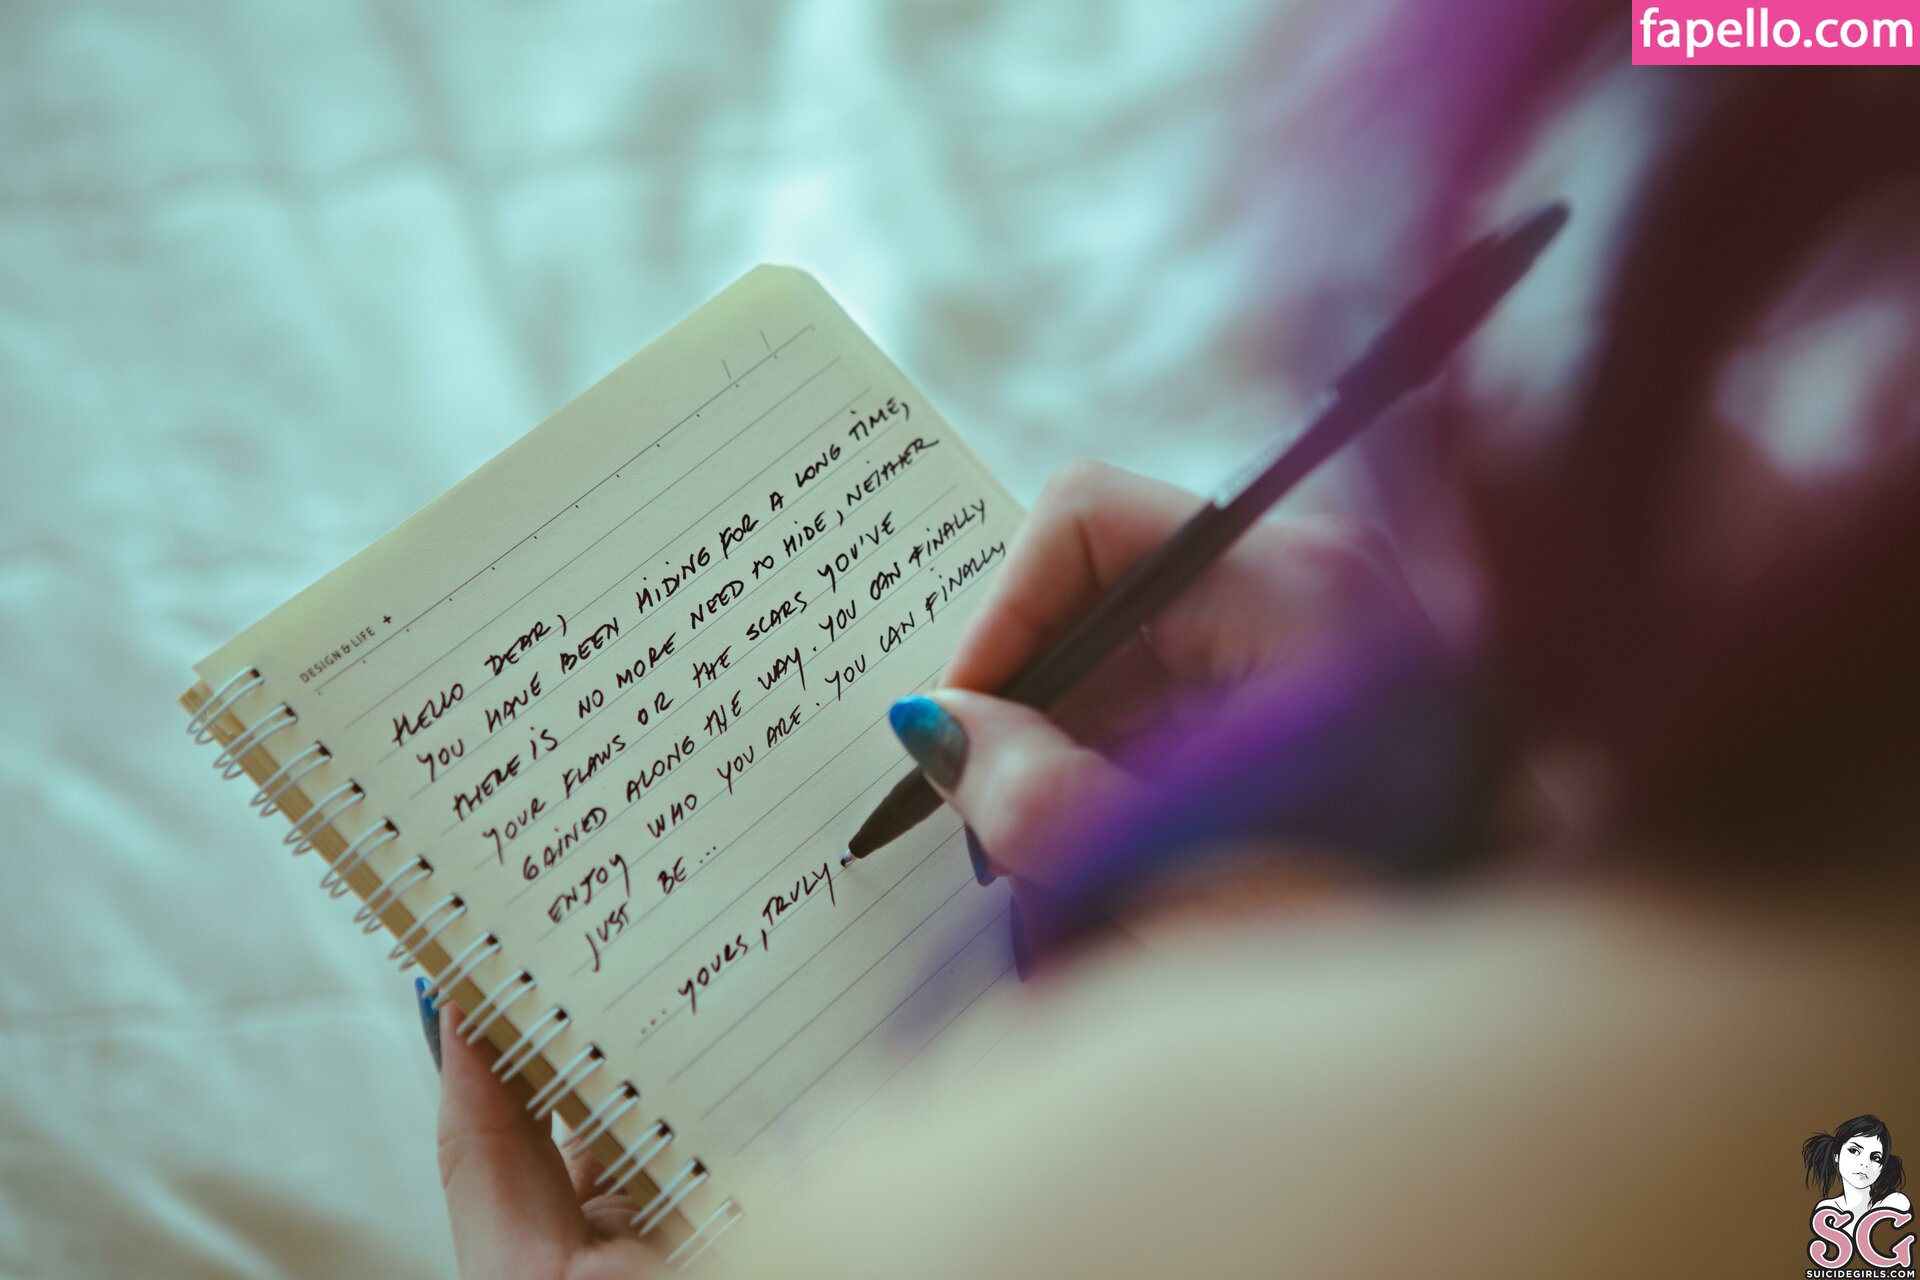 fapello.com
DESIGN & LIFE +
HELLO DEAR,
YOU HAVE BEEN HIDING FOR A LONG TIME,
THERE IS NO MORE NEED TO HIDE, NEITHER
YOUR FLAWS OR THE SCARS YOU'VE
GAINED ALONG THE WAY. YOU CAN FINALLY
ENJOY WHO YOU ARE. YOU CAN FINALLY
JUST BE...
... YOURS, TRULY
SG
SUICIDEGIRLS.COM